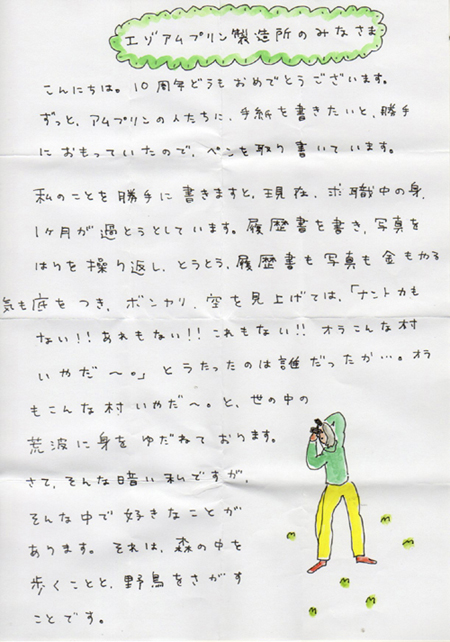 エゾアムプリン製造所のみなさま
こんにちは。10周年どうもおめでとうございます。
ずっと、アムプリンの人たちに、手紙を書きたいと、勝手
におもっていたので、ペンを取り書いています。
私のことを勝手に書きますと、現在、求職中の身、
1ヶ月が過とうとしています。履歴書を書き、写真を
はりを繰り返し、とうとう、履歴書も写真も金もやる
気も底をつき、ボンヤリ、空を見上げては、「ナントカも
ない!!あれもない!!これもない!!オラこんな村
いやだ〜。」とうたったのは誰だったか…。オラ
もこんな村いやだ〜。と、世の中の
荒波に身をゆだねております。
さて、そんな暗い私ですが、
そんな中で好きなことが
あります。それは、森の中を
歩くことと、野鳥をさがす
ことです。